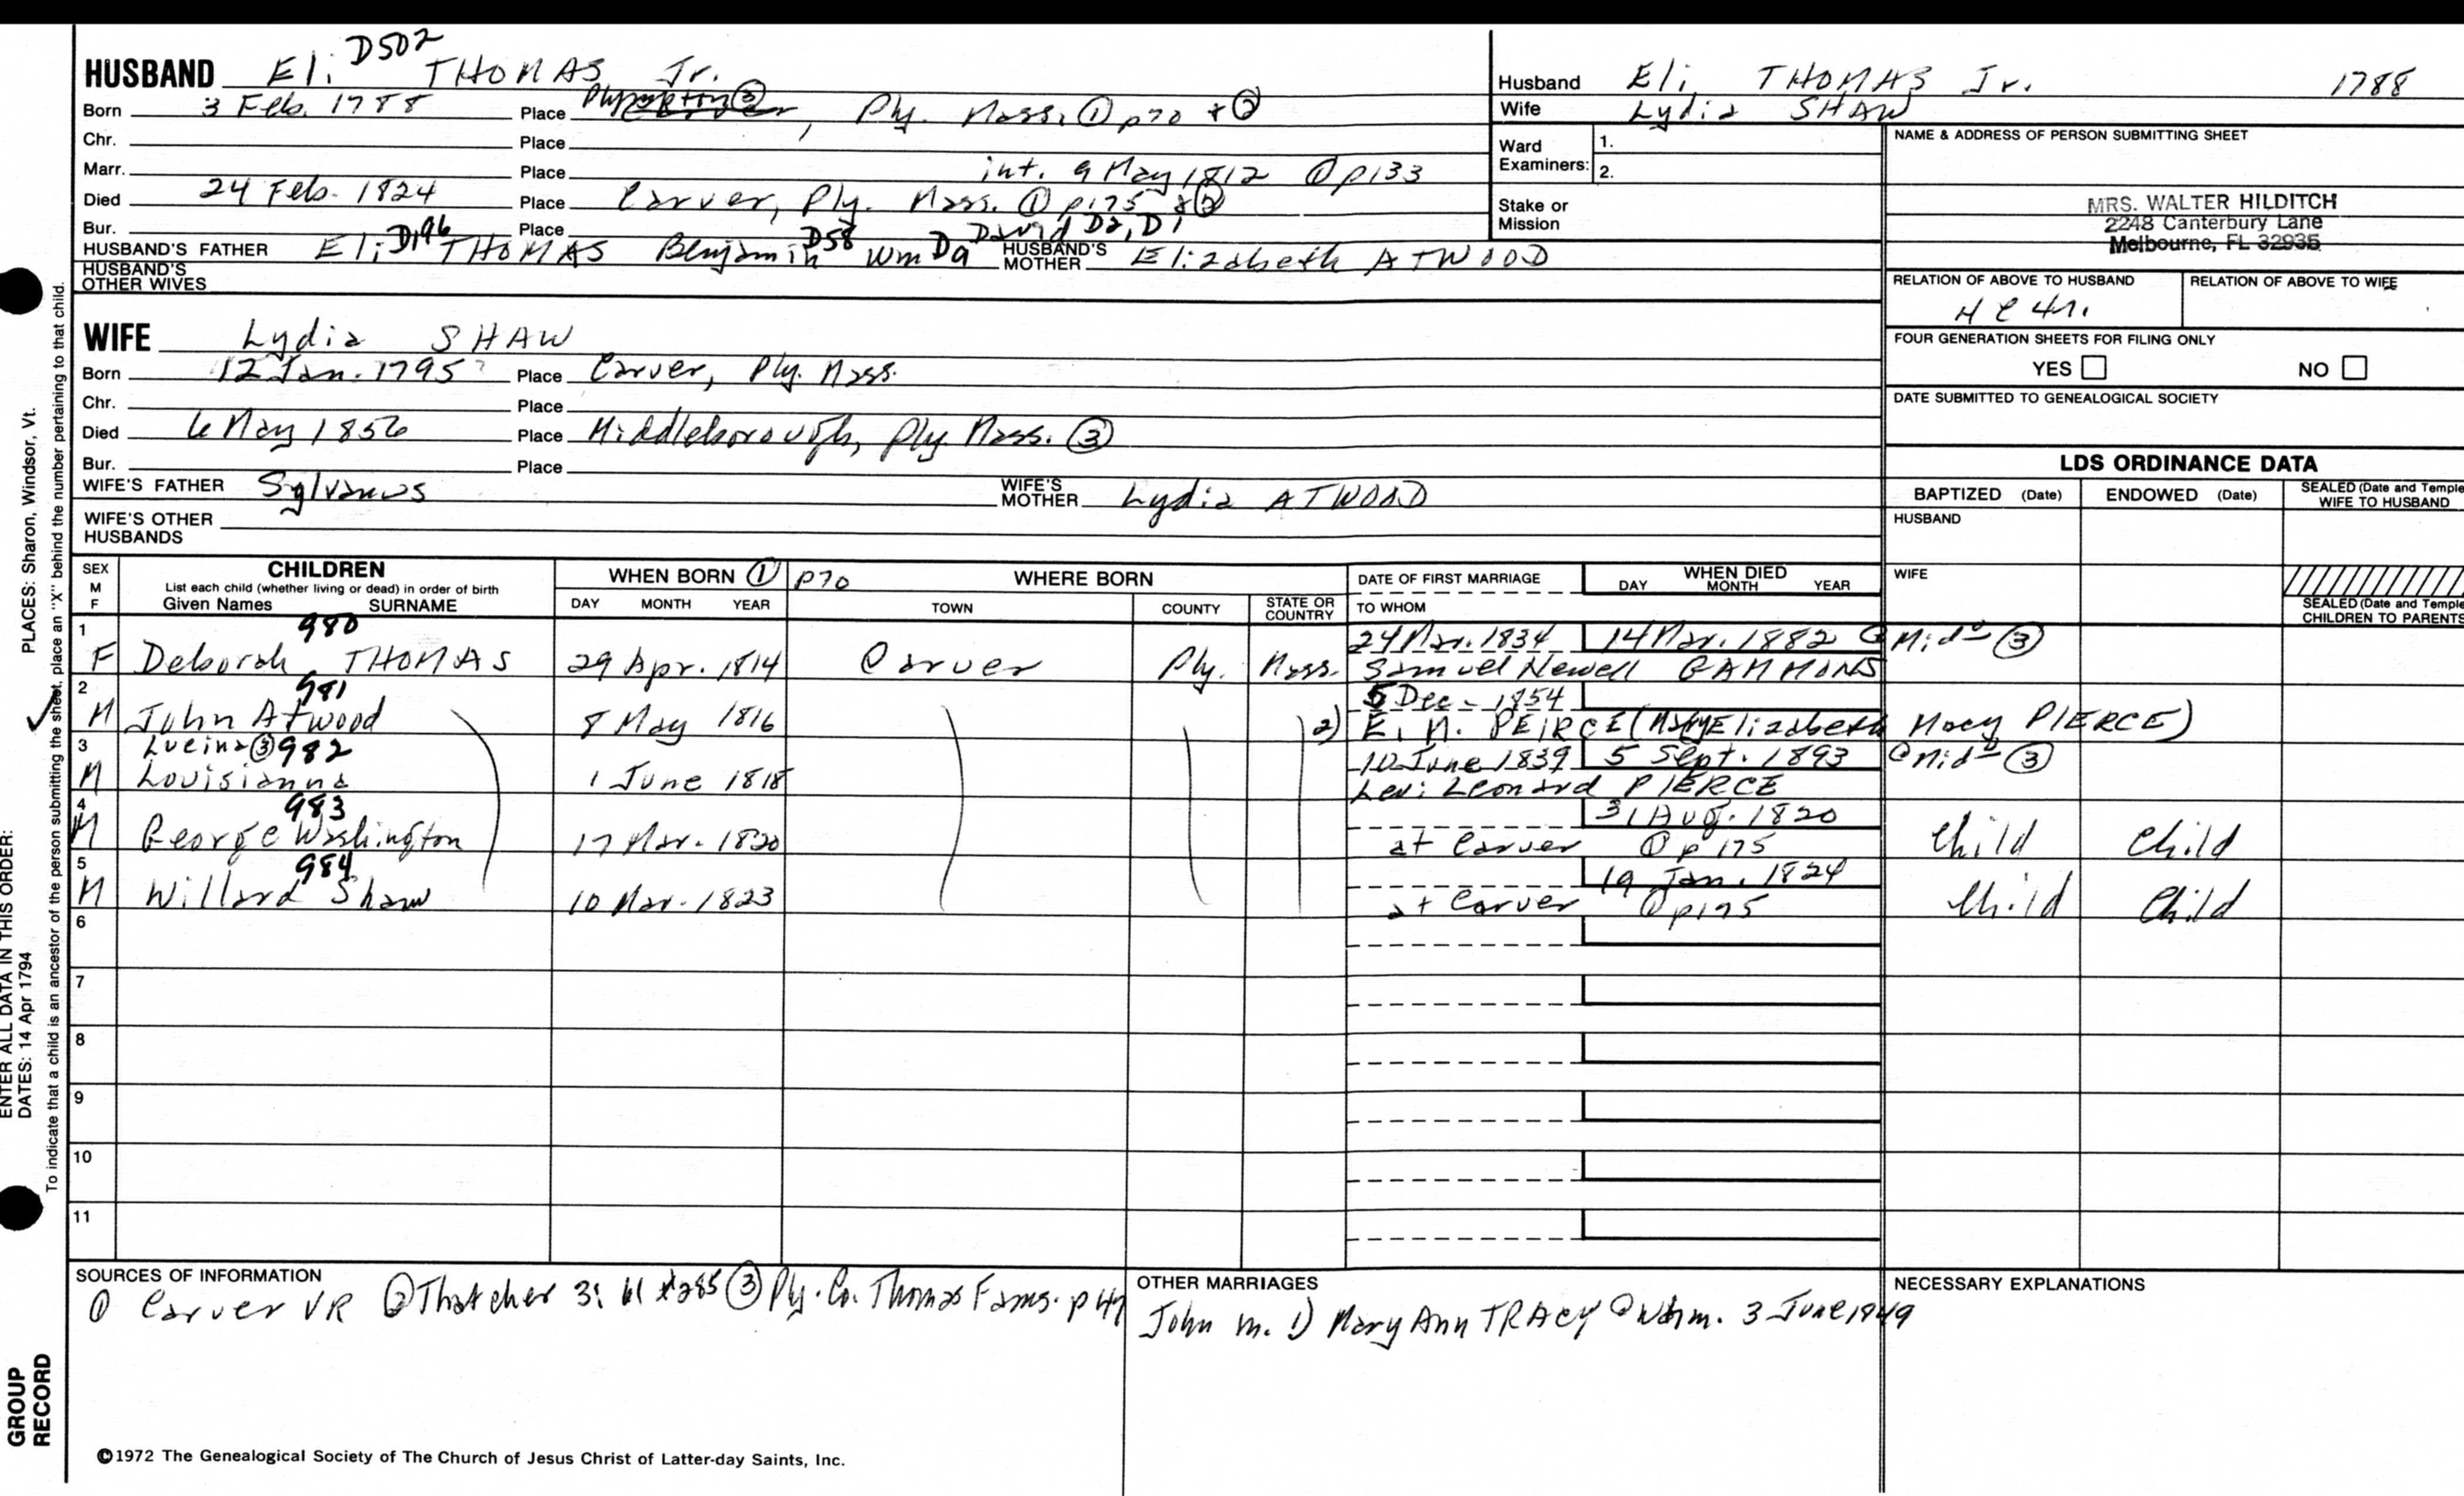 D502
HUSBAND Eli THOMAS Jr.
Born 3 Feb. 1788 Place Plympton ③ Carver, Ply. Mass. ① p70 + ②
Chr. Place
Marr. Place int. 9 May 1812 ① p133
Died 24 Feb. 1824 Place Carver, Ply. Mass. ① p175 & ②
Bur. Place David D2, D1
HUSBAND'S FATHER Eli D196 THOMAS Benjamin D58 Wm D9 HUSBAND'S MOTHER Elizabeth ATWOOD
HUSBAND'S OTHER WIVES
WIFE Lydia SHAW
Born 12 Jan. 1795? Place Carver, Ply. Mass.
Chr. Place
Died 6 May 1856 Place Middleborough, Ply Mass. ③
Bur. Place
WIFE'S FATHER Sylvanus WIFE'S MOTHER Lydia ATWOOD
WIFE'S OTHER HUSBANDS
Husband Eli THOMAS Jr. 1788
Wife Lydia SHAW
Ward Examiners: 1.
2.
Stake or Mission
NAME & ADDRESS OF PERSON SUBMITTING SHEET
MRS. WALTER HILDITCH
2248 Canterbury Lane
Melbourne, FL 32935
RELATION OF ABOVE TO HUSBAND RELATION OF ABOVE TO WIFE
FOUR GENERATION SHEETS FOR FILING ONLY
YES NO
DATE SUBMITTED TO GENEALOGICAL SOCIETY
LDS ORDINANCE DATA
BAPTIZED (Date) ENDOWED (Date) SEALED (Date and Temple) WIFE TO HUSBAND
HUSBAND
WIFE
SEALED (Date and Temple) CHILDREN TO PARENTS
SEX M F CHILDREN WHEN BORN ① p70 WHERE BORN DATE OF FIRST MARRIAGE WHEN DIED
List each child (whether living or dead) in order of birth
Given Names SURNAME DAY MONTH YEAR TOWN COUNTY STATE OR COUNTRY TO WHOM DAY MONTH YEAR
1 980 24 Mar. 1834 14 Mar. 1882 @ Mid ③
F Deborah THOMAS 29 Apr. 1814 Carver Ply. Mass. Samuel Newell GAMMONS
2 981 5 Dec. 1854
M John Atwood 8 May 1816 2) E. M. PEIRCE (Mary Elizabeth Macy PIERCE)
3 Lucina ③ 982 10 June 1839 5 Sept. 1893 @ Mid ③
M Louisianna 1 June 1818 Levi Leonard PIERCE
4 983 31 Aug. 1820
M George Washington 17 Mar. 1820 at Carver ① p 175 Child Child
5 984 19 Jan. 1824
M Willard Shaw 10 Mar. 1823 at Carver ① p175 Child Child
6
7
8
9
10
11
SOURCES OF INFORMATION
① Carver VR ② Thatcher 3: 61 #285 ③ Ply. Co. Thomas Fams. p 47
OTHER MARRIAGES
John m. 1) Mary Ann TRACY @ Wahm. 3 June 1849
NECESSARY EXPLANATIONS
©1972 The Genealogical Society of The Church of Jesus Christ of Latter-day Saints, Inc.
ENTER ALL DATA IN THIS ORDER:
DATES: 14 Apr 1794 PLACES: Sharon, Windsor, Vt.
To indicate that a child is an ancestor of the person submitting the sheet, place an "X" behind the number pertaining to that child.
GROUP
RECORD